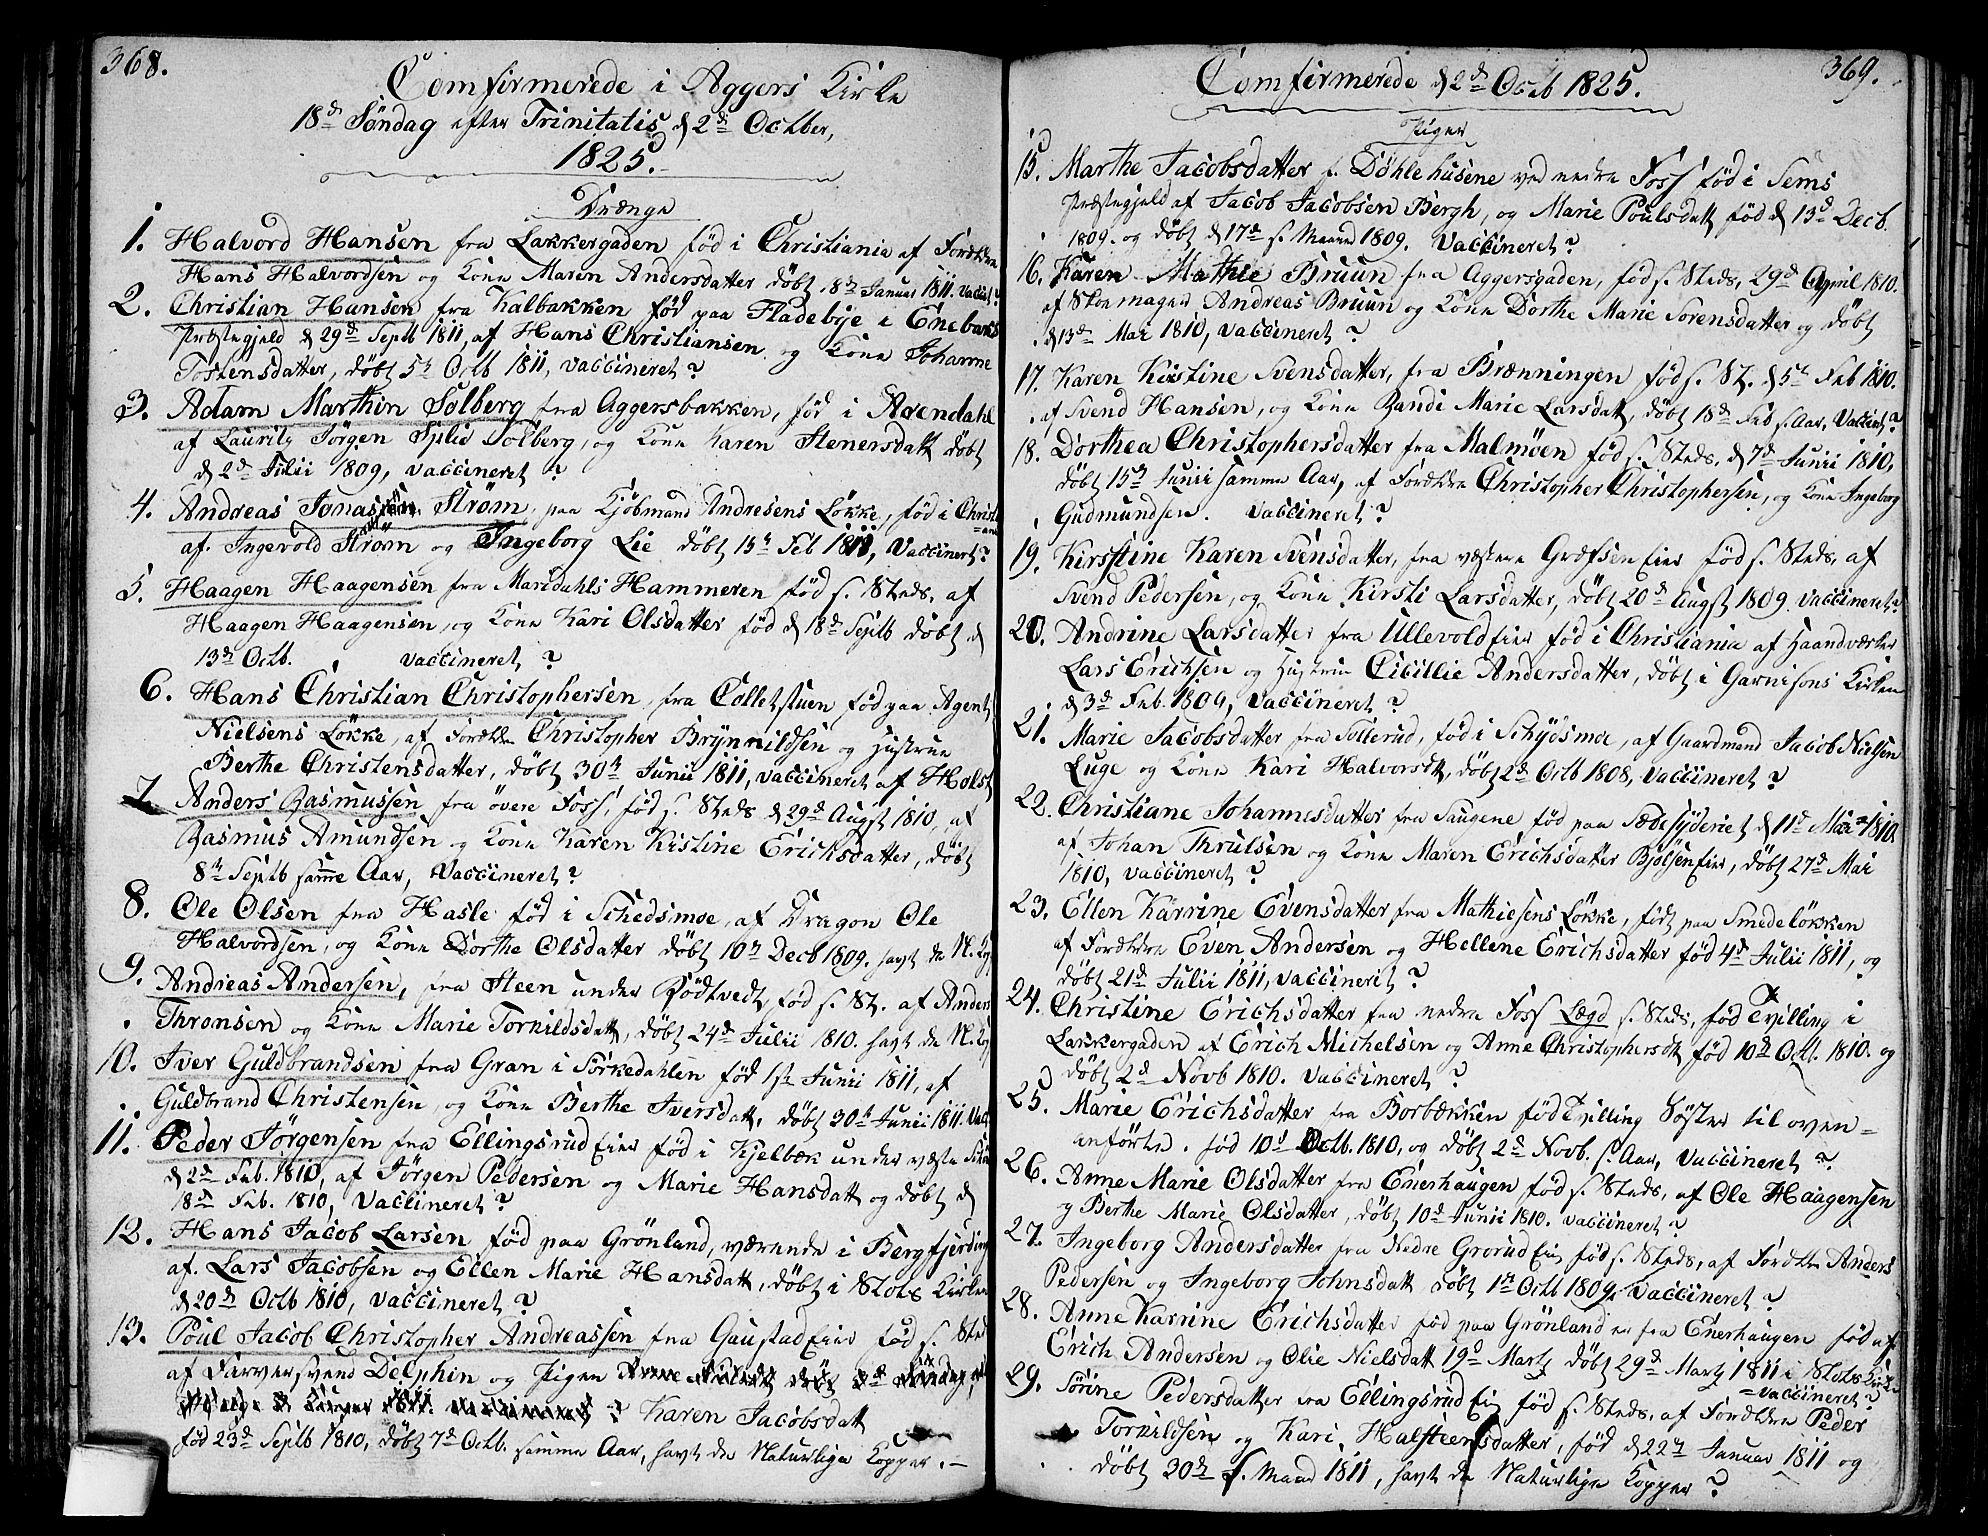 368.
Comfirmerede i Aggers Kirke
18de Søndag efter Trinitatis d 2de Octber,
1825.
Drænge
1. Halvord Hansen fra Lakkergaden fød i Christiania af Forældre
Hans Halvordsen og Kone Maren Andersdatter døbt 18de Januar 1811. Vaccint?
2. Christian Hansen fra Kalbakken fød paa Fladebye i Enebaks
Præstegjeld d 29de Septb 1811, af Hans Christiansen og Kone Johanne
Tostensdatter, døbt 5te Octb 1811, vaccineret?
3. Adam Marthin Solberg fra Aggersbakken, fød i Arendahl
af Lauritz Jørgen Splid Solberg, og Kone Karen Stenersdatt døbt
d 2de Julii 1809, vaccineret?
4. Andreas Jonas Strøm, paa Kjøbmand Andresens Løkke, fød i Christi
=ania
af Ingevold Strøm og Ingeborg Lie døbt 15de Feb 1811, Vaccineret?
5. Haagen Haagensen fra Maridahls Hammeren fød s. Steds, af
Haagen Haagensen, og Kone Kari Olsdatter fød d 18de Septb døbt d
13de Octb. vaccineret?
6. Hans Christian Christophersen, fra Colletstuen fød paa Agent
Nielsens Løkke, af Forældre Christopher Brynnildsen og Hustrue
Berthe Christensdatter, døbt 30te Junii 1811, vaccineret af Holst
7. Anders Rasmussen fra øvere Foss, fød s. Steds d 29de Augst 1810, af
Rasmus Amundsen og Kone Karen Kistine Erichsdatter, døbt
8de Septb samme Aar, Vaccineret?
8. Ole Olsen fra Hasle fød i Schedsmoe, af Dragon Ole
Halvordsen, og Kone Dorthe Olsdatter døbt 10de Decb 1809. havt de N. Kop
9. Andreas Andersen, fra Steen under Rødtvedt, fød s. St. af Anders
Thronsen og Kone Marie Torkildsdatt, døbt 24de Julii 1810. havt de N. Kop
10. Iver Guldbrandsen fra Gran i Sørkedahlen fød 1ste Junii 1811, af
Guldbrand Christensen, og Kone Berthe Iversdatt, døbt 30te Junii 1811. Vac
11. Peder Jørgensen fra Ellingsrud Eier fød i Kjelbæk under væstre
d 2de Feb. 1810, af Jørgen Pedersen og Marie Hansdatt og døbt d
18de Feb. 1810, Vaccineret?
12. Hans Jacob Larsen fød paa Grønland, værende i Bergfjerding
af Lars Jacobsen og Ellen Marie Hansdatt, døbt i Slots Kirken
d 20de Octb 1810, vaccineret?
13. Poul Jacob Christopher Andreassen fra Gaustad Eier fød s. Sted
af Farversvend Delphin og Pigen
Karen Jacobsdatt
fød 23de Septb 1810, døbt 7de Octb. samme Aar, havt de Naturlige Kopper.
369.
Comfirmerede d 2de Octb 1825.
Piger
15. Marthe Jacobsdatter f. Døhlehusene ved nedre Foss fød i Sems
Præstegjeld af Jacob Jacobsen Bergh, og Marie Poulsdatt fød d 13de Decb.
1809. og døbt d 17de s. Maaned 1809. Vaccineret?
16. Karen Mathie Bruun fra Aggersgaden, fød s. Steds, 29de April 1810.
af Skoemager Andreas Bruun og Kone Dorthe Marie Sorensdatter og døbt
d 13de Mai 1810, vaccineret?
17. Karen Kistine Svensdatter, fra Brænningen fød s. St. d 5te Feb 1810.
af Svend Hansen, og Kone Randi Marie Larsdatt, døbt 18de Feb s. Aar, Vaccint?
18. Dorthea Christophersdatter fra Malmøen fød s. Steds, d 7de Junii 1810,
døbt 15de Junii samme Aar, af Forældre Christopher Christophersen, og Kone Ingeborg
Gudmundsen. Vaccineret?
19. Kirstine Karen Svensdatter, fra væstere Græfsen Eier fød s. Steds, af
Svend Pedersen, og Kone Kirsti Larsdatter, døbt 20de Augst 1809. Vaccineret?
20. Andrine Larsdatter fra Ullevold Eier fød i Christiania af Haandværker
Lars Erichsen og Hustrue Cicillie Andersdatter, døbt i Garnisons Kirken
d 3de Feb. 1809, Vaccineret?
21. Marie Jacobsdatter fra Sollerud, fød i Schydsmoe, af Gaardmand Jacob Nielsen
Luge og Kone Kari Halvorsdtt, døbt 2de Octb 1808, Vacciineret?
22. Christiane Johannesdatter fra Saugene fød paa Sædesyderiet d 11te Mai 1810
af Johan Thrulsen og Kone Maren Erichsdatter Bjølsen Eier, døbt 27de Mai
1810, vaccineret?
23. Ellen Karrine Evensdatter fra Mathiesens Løkke, født paa Smedeløkken
af Forældre Even Andersen og Hellene Erichsdatter fød 4de Julii 1811, og
døbt 21de Julii 1811, vaccineret?
24. Christine Erichsdatter fra nedre Foss Lægd s. Steds, fød Tvilling i
Lakkergaden af Erich Michelsen og Anne Christophersdtt fød 10de Octb. 1810. og
døbt 2de Novb 1810. Vaccineret?
25. Marie Erichsdatter fra Borbækken fød Tvilling Søster til oven=
anførte. fød 10d Octb. 1810, og døbt 2de Novb. s. Aar, Vaccineret?
26. Anne Marie Olsdatter fra Enerhaugen fød s. Steds, af Ole Haagensen
og Berthe Marie Olsdatter, døbt 10de Junii 1810. vaccineret?
27. Ingeborg Andersdatter fra Nedre Grorud Eie fød s. Steds, af Forældre Anders
Pedersen og Ingeborg Johnsdatt døbt 1ste Octb 1809. vaccineret?
28. Anne Karrine Erichsdatter fød paa Grønland nu fra Enerhaugen fød af
Erich Andersen og Olie Nielsdatt 19d Martz døbt 29de Martz 1811 i Slots Kirke
=vaccineret?
29. Sørine Pedersdatter fra Ellingsrud Eie fød s. Steds, af Forældre Peder
Torkildsen og Kari Halsteensdatter, fød d 22de Januar 1811 og
døbt 30te s. Maaned 1811, havt de Naturlige Kopper?